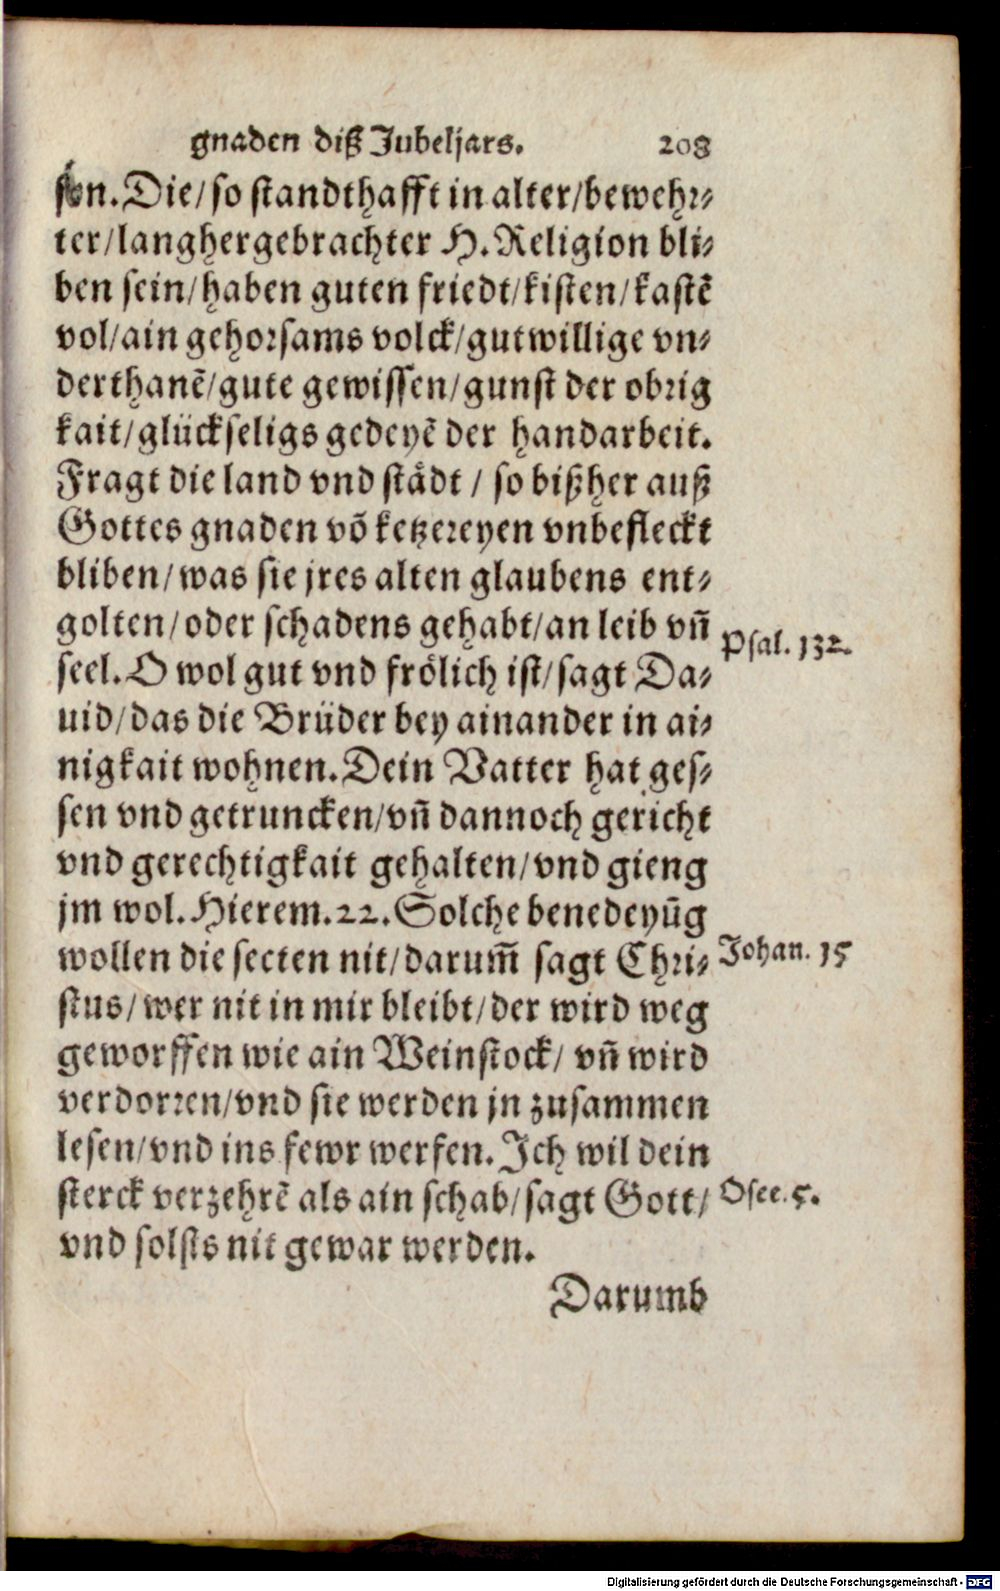 gnaden diß Jubeljars. 208
sen. Die/ so standthafft in alter/ bewehr⸗
ter/ langhergebrachter H. Religion bli⸗
ben sein/ haben guten friedt/ kisten/ kastē
vol/ ain gehorsams volck/ gutwillige vn⸗
derthanē/ gute gewissen/ gunst der obrig
kait/ glückseligs gedeyē der handarbeit.
Fragt die land vnd städt / so bißher auß
Gottes gnaden võ ketzereyen vnbefleckt
bliben/ was sie jres alten glaubens ent⸗
golten/ oder schadens gehabt/ an leib vñ
seel. O wol gut vnd frölich ist/ sagt Da⸗
Psal. 132.
uid/ das die Brüder bey ainander in ai⸗
nigkait wohnen. Dein Vatter hat ges⸗
sen vnd getruncken/ vñ dannoch gericht
vnd gerechtigkait gehalten/ vnd gieng
jm wol. Hierem. 22. Solche benedeyūg
wollen die secten nit/ darum̄ sagt Chri⸗
Johan. 15
stus/ wer nit in mir bleibt/ der wird weg
geworffen wie ain Weinstock/ vñ wird
verdorren/ vnd sie werden jn zusammen
lesen/ vnd ins fewr werfen. Ich wil dein
sterck verzehrē als ain schab/ sagt Gott/
Osee. 5.
vnd solsts nit gewar werden.
Darumb
Digitalisierung gefördert durch die Deutsche Forschungsgemeinschaft - DFG